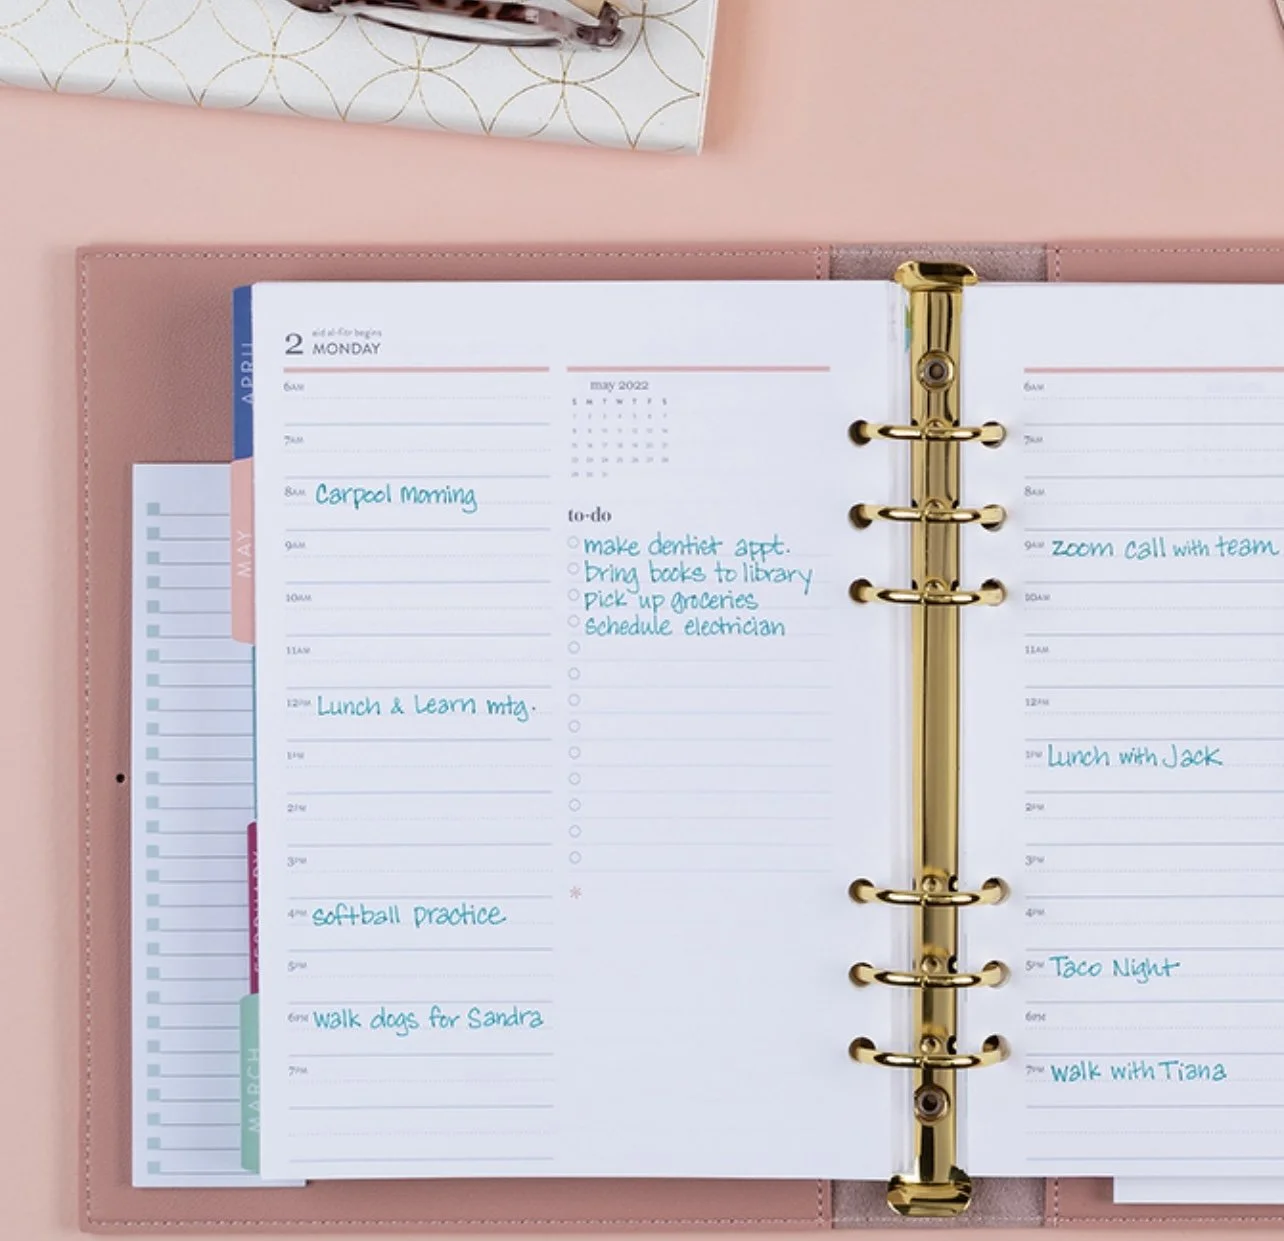 APRIL
MAY
MARCH
2
eid al-fitr begins
MONDAY
6AM
7AM
8AM Carpool Morning
9AM
10AM
11AM
12PM Lunch & Learn mtg.
1PM
2PM
3PM
4PM softball practice
5PM
6PM walk dogs for Sandra
7PM
may 2022
S M T W T F S
1 2 3 4 5 6 7
8 9 10 11 12 13 14
15 16 17 18 19 20 21
22 23 24 25 26 27 28
29 30 31
to-do
make dentist appt.
bring books to library
pick up groceries
schedule electrician
*
6AM
7AM
8AM
9AM zoom call with team
10AM
11AM
12PM
1PM Lunch with Jack
2PM
3PM
4PM
5PM Taco Night
6PM
7PM walk with Tiana